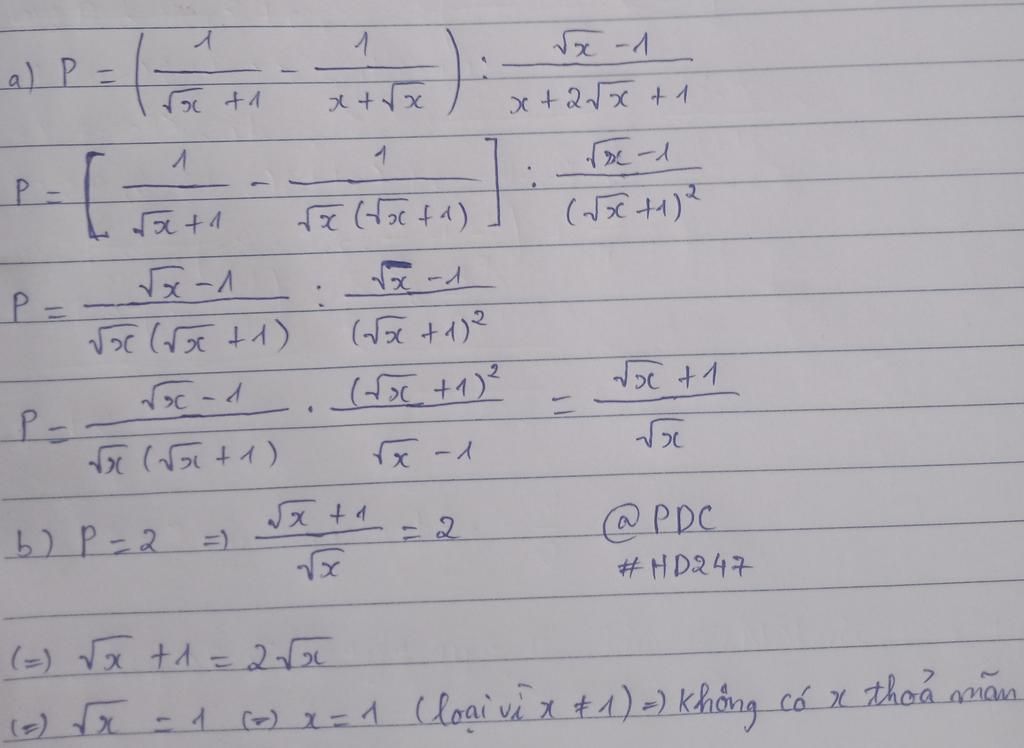 a) P = (1/(√x + 1) - 1/(x + √x)) : (√x - 1)/(x + 2√x + 1)
P = [1/(√x + 1) - 1/(√x(√x + 1))] : (√x - 1)/(√x + 1)²
P = (√x - 1)/(√x(√x + 1)) : (√x - 1)/(√x + 1)²
P = (√x - 1)/(√x(√x + 1)) . (√x + 1)²/(√x - 1) = (√x + 1)/√x
b) P = 2 => (√x + 1)/√x = 2
@PDC
#HD247
(=) √x + 1 = 2√x
(=) √x = 1 (=) x = 1 (loại vì x ≠ 1) => không có x thoả mãn